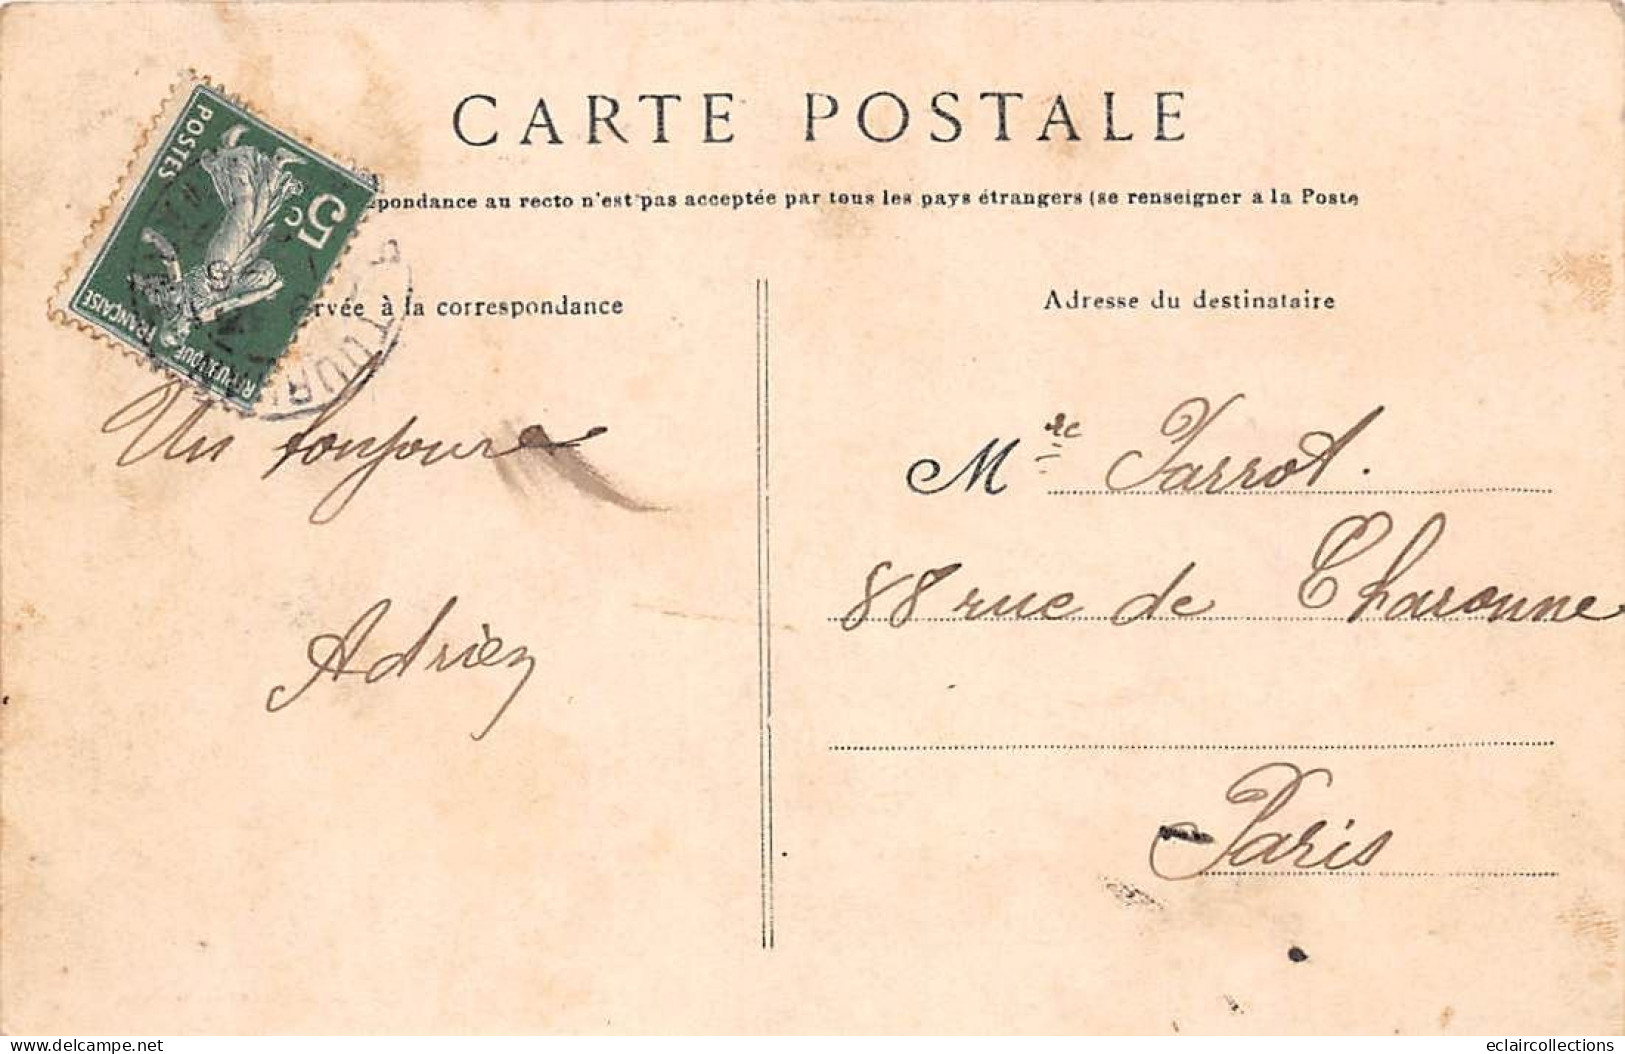 CARTE POSTALE
pondance au recto n'est pas acceptée par tous les pays étrangers (se renseigner a la Poste
POSTES
5c
REPUBLIQUE FRANÇAISE
TOUR
rvée à la correspondance
Adresse du destinataire
Un bonjour
Adrien
Mre Jarrot.
88 rue de Charonne
Paris
delcampe.net
eclaircollections